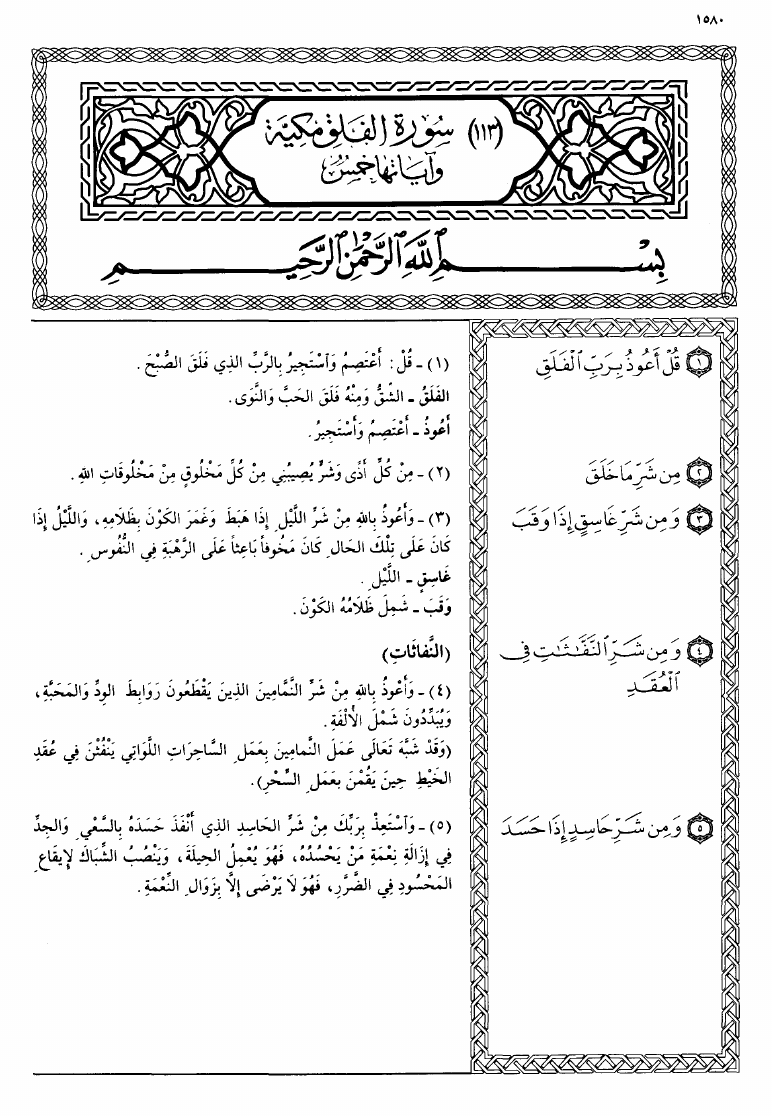 ١٥٨٠
(١١٣) سُورَة الفَلَقِ مَكيَّة
وَآيَاتها خَمْسٌ
بِسْمِ ٱللَّهِ ٱلرَّحْمَٰنِ ٱلرَّحِيمِ
١ قُلْ أَعُوذُ بِرَبِّ ٱلْفَلَقِ
(١) - قُلْ: أَعْتَصِمُ وَأَسْتَجِيرُ بِالرَّبِّ الذِي فَلَقَ الصُّبْحَ.
الفَلَقُ - الشَّقُّ وَمِنْهُ فَلَقَ الحَبَّ وَالنَّوَى.
أَعُوذُ - أَعْتَصِمُ وَأَسْتَجِيرُ.
٢ مِن شَرِّ مَا خَلَقَ
(٢) - مِنْ كُلِّ أَذًى وَشَرٍّ يُصِيبُنِي مِنْ كُلِّ مَخْلُوقٍ مِنْ مَخْلُوقَاتِ اللهِ.
٣ وَمِن شَرِّ غَاسِقٍ إِذَا وَقَبَ
(٣) - وَأَعُوذُ بِاللهِ مِنْ شَرِّ اللَّيْلِ إِذَا هَبَطَ وَغَمَرَ الكَوْنَ بِظَلَامِهِ، وَاللَّيْلُ إِذَا
كَانَ عَلَى تِلْكَ الحَالِ كَانَ مَخُوفاً بَاعِثاً عَلَى الرَّهْبَةِ فِي النُّفُوسِ.
غَاسِقٍ - اللَّيْلِ.
وَقَبَ - شَمِلَ ظَلَامُهُ الكَوْنَ.
٤ وَمِن شَرِّ ٱلنَّفَّٰثَٰتِ فِى
ٱلْعُقَدِ
(النَّفاثَاتِ)
(٤) - وَأَعُوذُ بِاللهِ مِنْ شَرِّ النَّمَّامِينَ الذِينَ يَقْطَعُونَ رَوَابِطَ الوِدِّ وَالمَحَبَّةِ،
وَيُبَدِّدُونَ شَمْلَ الأُلْفَةِ.
(وَقَدْ شَبَّهَ تَعَالَى عَمَلَ النَّمامِينَ بِعَمَلِ السَّاحِرَاتِ اللَّوَاتِي يَنْفُثْنَ فِي عُقَدِ
الخَيْطِ حِينَ يَقُمْنَ بِعَمَلِ السِّحْرِ).
٥ وَمِن شَرِّ حَاسِدٍ إِذَا حَسَدَ
(٥) - وَأَسْتَعِذْ بِرَبِّكَ مِنْ شَرِّ الحَاسِدِ الذِي أَنْفَذَ حَسَدَهُ بِالسَّعْيِ وَالجِدِّ
فِي إِزَالَةِ نِعْمَةِ مَنْ يَحْسُدُهُ، فَهُوَ يُعْمِلُ الحِيلَةَ، وَيَنْصُبُ الشِّبَاكَ لإِيقَاعِ
المَحْسُودِ فِي الضَّرَرِ، فَهُوَ لَا يَرْضَى إِلَّا بِزَوَالِ النِّعْمَةِ.